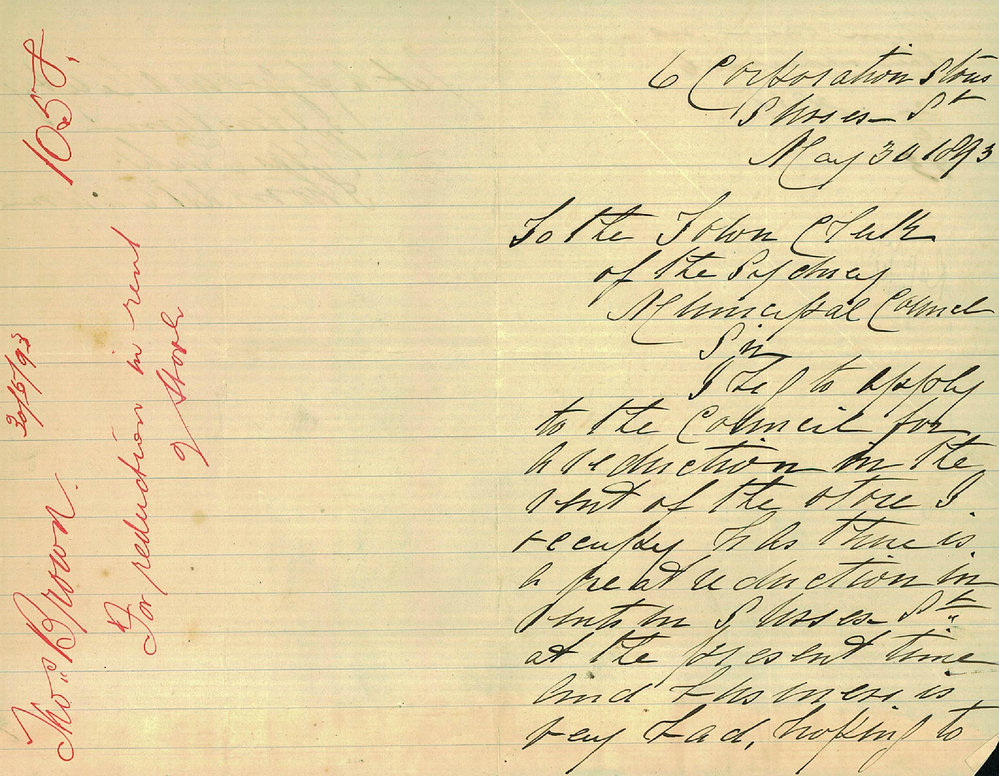 1054
Thos Brown 30/5/93
For reduction in rent
of Store
6 Corporation Stores
Sussex St
May 30 1893
To the Town Clerk
of the Sydney
Municipal Council
Sir
I beg to apply
to the Council for
a reduction in the
rent of the store I
occupy has there is
a great reduction in
rents in Sussex St
at the present time
and business is
very bad, hoping to